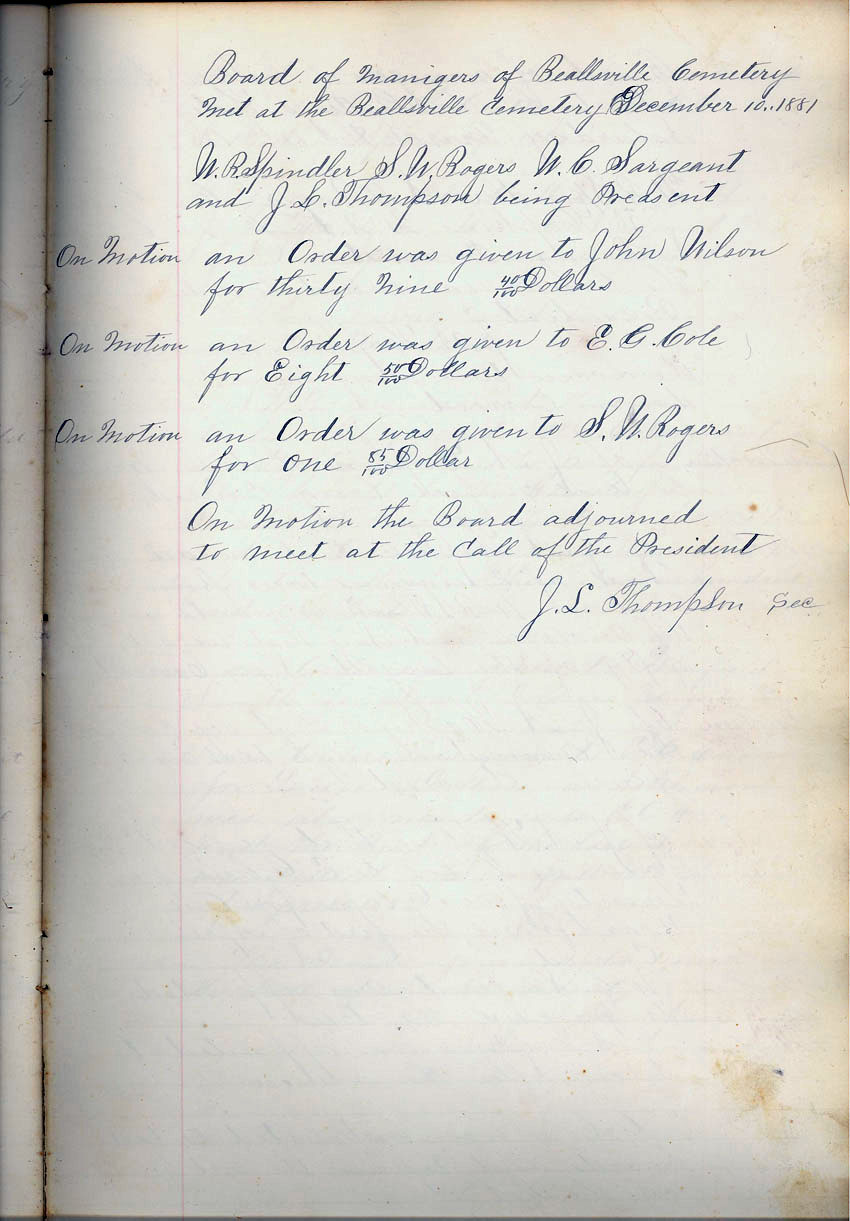 Board of Manigers of Beallsville Cemetery
Met at the Beallsville Cemetery December 10, 1881
W. R. Spindler S. W. Rogers W. C. Sargeant
and J. L. Thompson being Preasent
On Motion an Order was given to John Wilson
for thirty Nine 40/100 Dollars
On Motion an Order was given to E. G. Cole
for Eight 50/100 Dollars
On Motion an Order was given to S. W. Rogers
for One 85/100 Dollar
On Motion the Board adjourned
to meet at the Call of the President
J. L. Thompson Sec